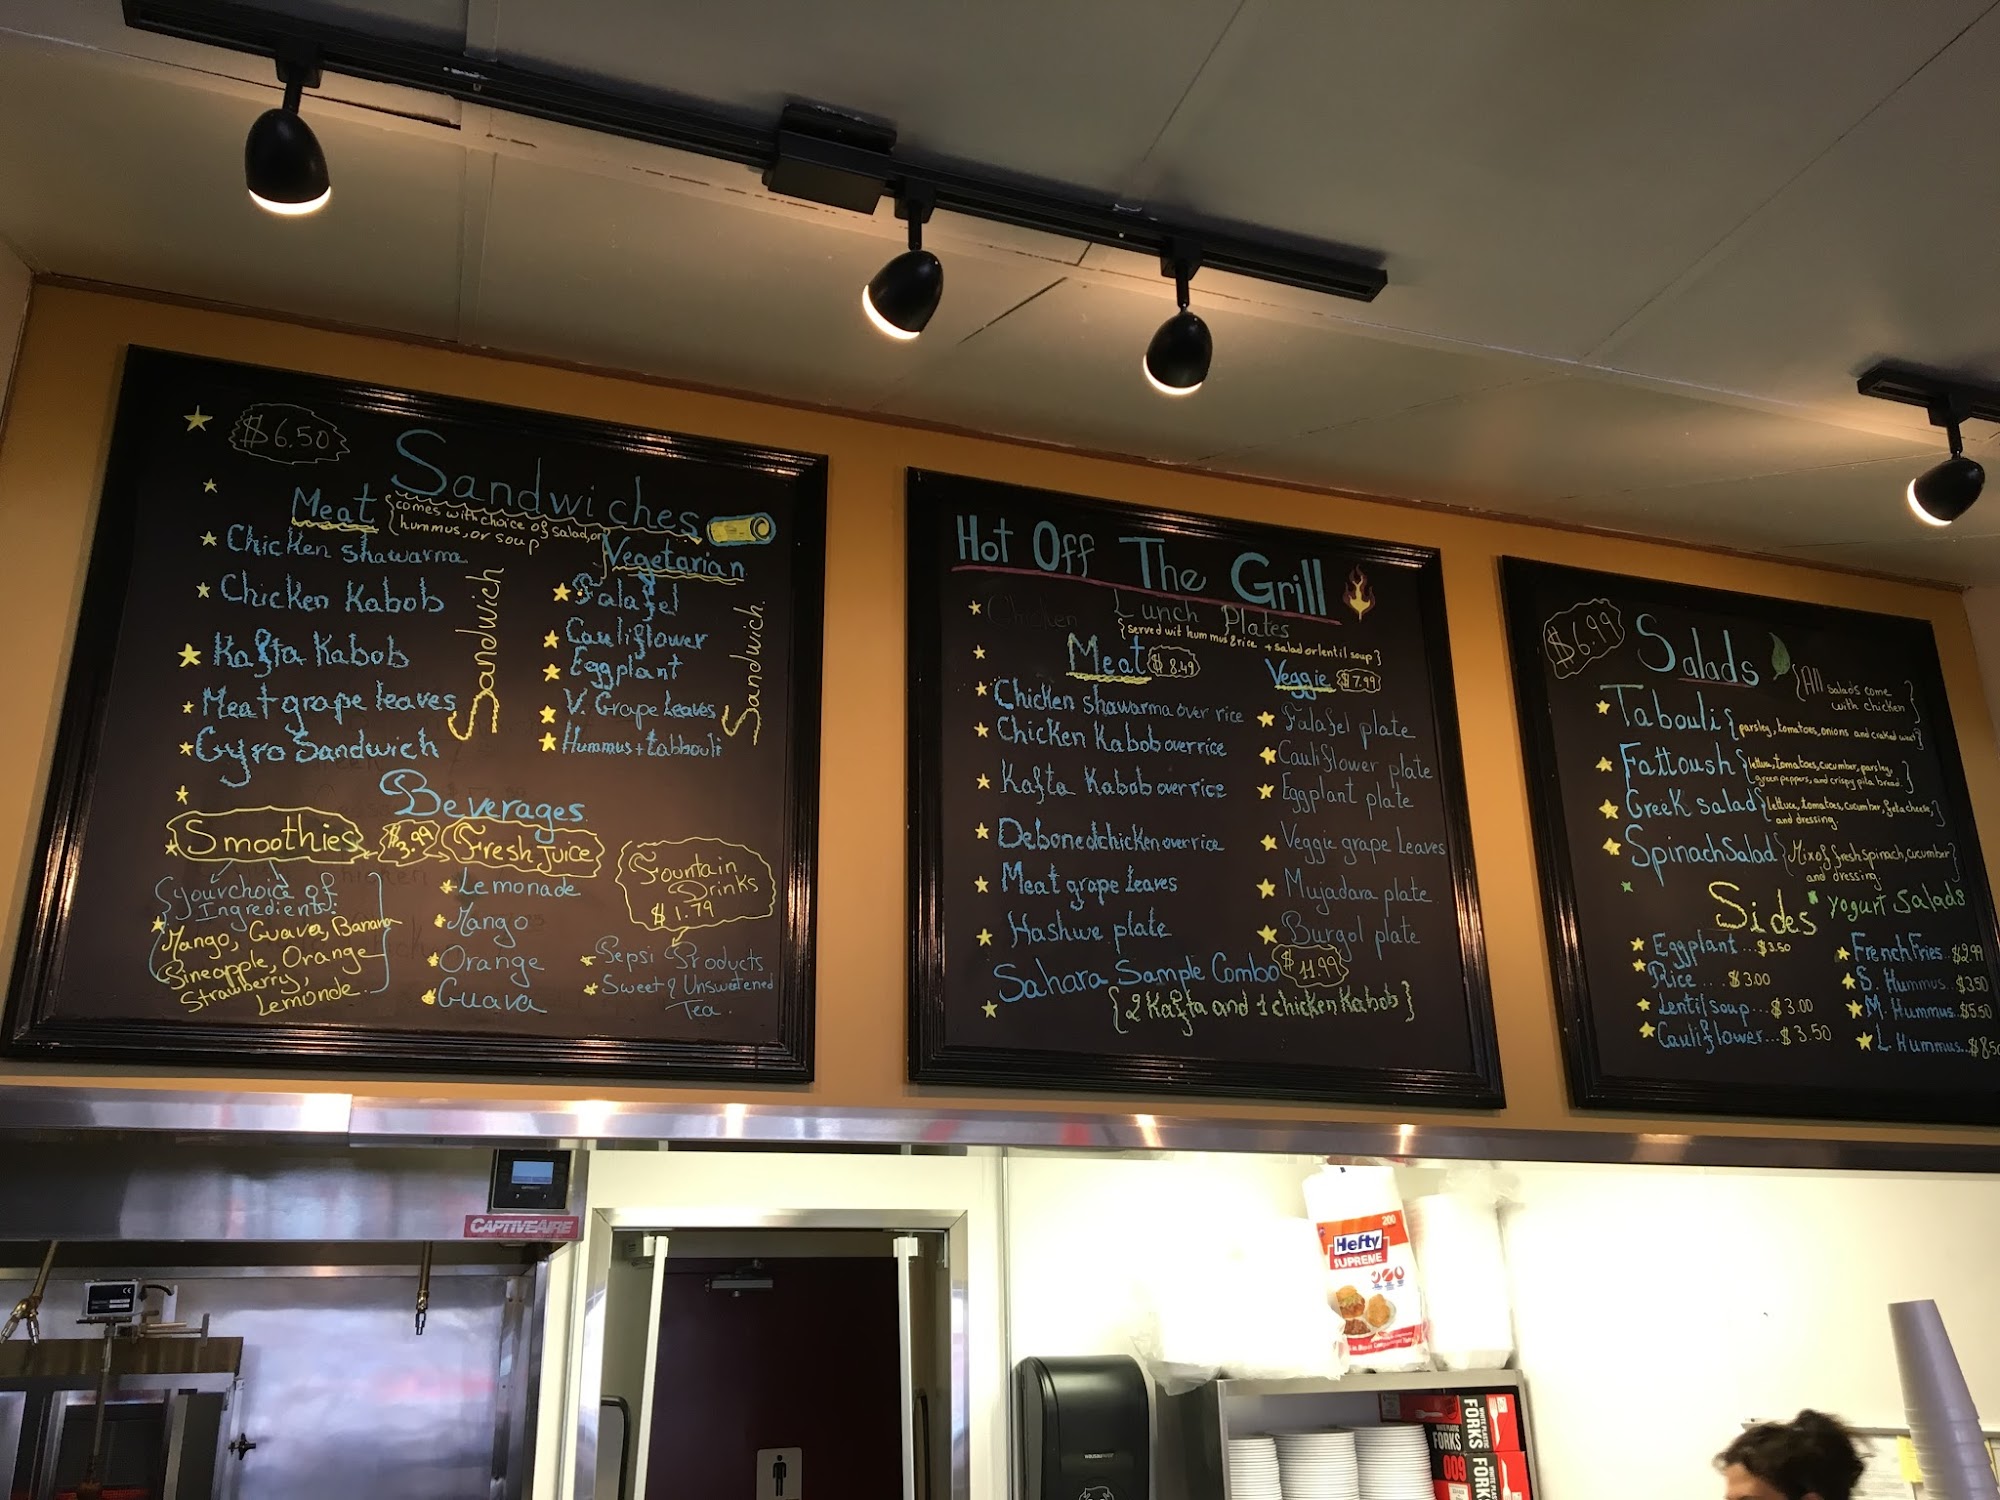 $6.50
Sandwiches
Meat
{comes with choice of salad, or
hummus, or soup
Vegetarian
Chicken shawarma
Chicken Kabob
Kafta Kabob
Meat grape leaves
Gyro Sandwich
Sandwich
Falafel
Cauliflower
Eggplant
V. Grape Leaves
Hummus + tabbouli
Sandwich.
Beverages
Smoothies
$3.99
Fresh Juice
{your choice of
Ingredients:
Mango, Guava, Banana
Pineapple, Orange
Strawberry,
Lemonde..}
Lemonade
Mango
Orange
Guava
Fountain
Drinks
$1.79
Pepsi Products
Sweet & Unsweetened
Tea.
Hot Off The Grill
Chicken
Lunch Plates
{served wit hummus & rice + salad or lentil soup}
Meat $8.49
Chicken shawarma over rice
Chicken Kabob over rice
Kafta Kabob over rice
Deboned chicken over rice
Meat grape leaves
Hashwe plate
Veggie $7.99
Falafel plate
Cauliflower plate
Eggplant plate
Veggie grape Leaves
Mujadara plate.
Burgol plate
Sahara Sample Combo $11.99
{2 Kafta and 1 chicken Kabob}
$6.99
Salads
{All salads come
with chicken}
Tabouli {parsley, tomatoes, onions and craked weat}
Fattoush {lettuce, tomatoes, cucumber, parsley,
green peppers, and crispy pita bread.}
Greek salad {lettuce, tomatoes, cucumber, feta cheese,
and dressing.}
Spinach Salad {Mix of fresh spinach, cucumber
and dressing.}
Yogurt Salads
Sides
Eggplant...$3.50
Rice ... $3.00
Lentil soup...$3.00
Cauliflower...$3.50
French Fries..$2.99
S. Hummus...$3.50
M. Hummus...$5.50
L. Hummus...$8.50
CAPTIVEAIRE
200
Hefty
SUPREME
WHITE PLASTIC
FORKS
FORKS
600
WHITE PLASTIC
FORKS